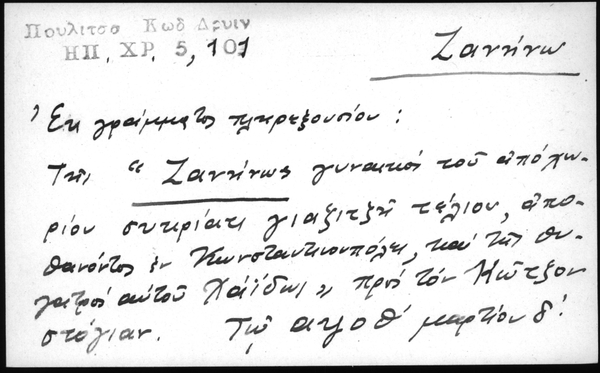 Πουλιτσα Κωδ Δρυιν
ΗΠ. ΧΡ. 5, 101
Ζαννίνω
Ἐκ γράμματος πληρεξουσίου :
Τῆς "Ζαννίνως γυναικὸς τοῦ ἀπόχω-
ρίου γιαζιτζῆ τέλιου, ἀπο-
θανόντος ἐν Κωνσταντινουπόλει, καὶ τῆς θυ-
γατρὸς αὐτοῦ Χάϊδως" πρὸς τὸν Κῶτζον
στόγιαν. Τῷ αψοθ' μαρτίου δ'.